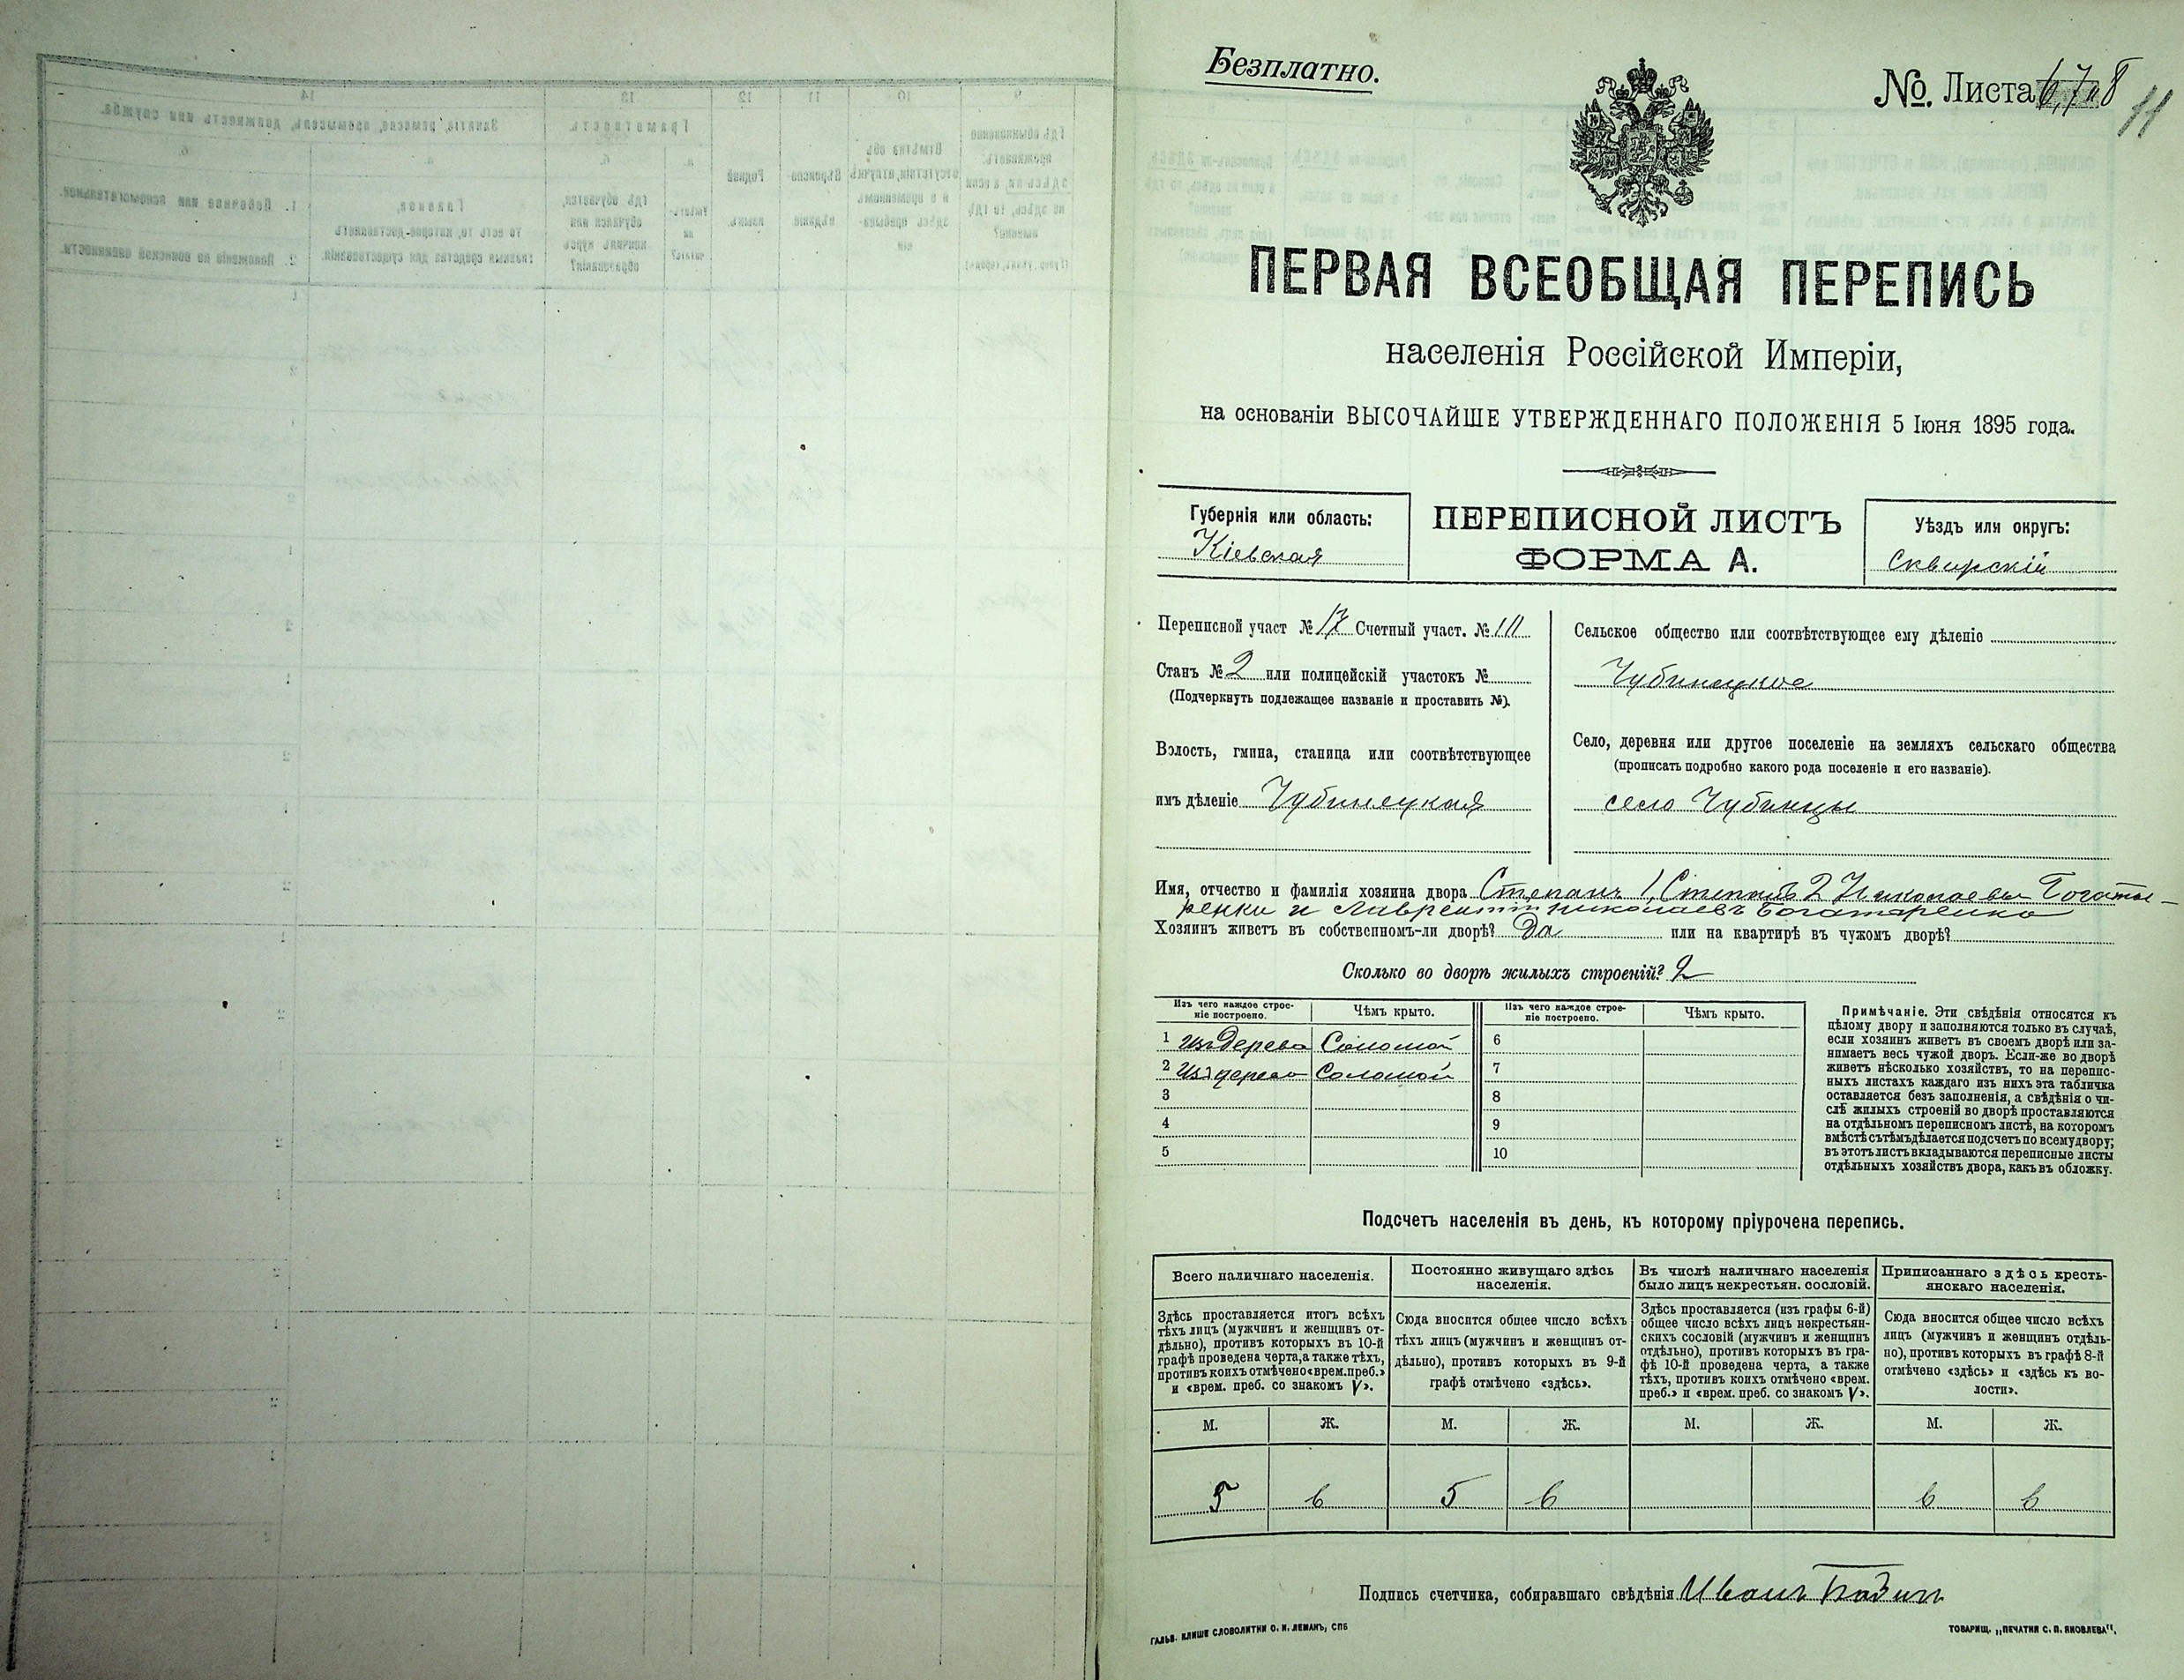 Безплатно.
№ Листа 6, 7 и 8
11
ПЕРВАЯ ВСЕОБЩАЯ ПЕРЕПИСЬ
населенія Россійской Имперіи,
на основаніи ВЫСОЧАЙШЕ УТВЕРЖДЕННАГО ПОЛОЖЕНІЯ 5 Іюня 1895 года.
Губернія или область:
Кіевская
ПЕРЕПИСНОЙ ЛИСТЪ
ФОРМА А.
Уѣздъ или округъ:
Сквирскій
Переписной участ № 17 Счетный участ. № III
Станъ № 2 или полицейскій участокъ №
(Подчеркнуть подлежащее названіе и проставить №).
Волость, гмина, станица или соотвѣтствующее
имъ дѣленіе Чубинецкая
Сельское общество или соотвѣтствующее ему дѣленіе
Чубинецкое
Село, деревня или другое поселеніе на земляхъ сельскаго общества
(прописать подробно какого рода поселеніе и его названіе).
село Чубинцы
Имя, отчество и фамилія хозяина двора Степанъ 1, Степанъ 2 Николаевы Богаты-
ренки и Лаврентій Николаевъ Богатаренко
Хозяинъ живетъ въ собственномъ-ли дворѣ? Да или на квартирѣ въ чужомъ дворѣ?
Сколько во дворѣ жилыхъ строеній? 2
Изъ чего каждое строе-
ніе построено.
Чѣмъ крыто.
Изъ чего каждое строе-
ніе построено.
Чѣмъ крыто.
1 изъ дерева Соломой 6
2 изъ дерева Соломой 7
3 8
4 9
5 10
Примѣчаніе. Эти свѣдѣнія относятся къ
цѣлому двору и заполняются только въ случаѣ,
если хозяинъ живетъ въ своемъ дворѣ или за-
нимаетъ весь чужой дворъ. Если-же во дворѣ
живетъ нѣсколько хозяйствъ, то на перепис-
ныхъ листахъ каждаго изъ нихъ эта табличка
оставляется безъ заполненія, а свѣдѣнія о чи-
слѣ жилыхъ строеній во дворѣ проставляются
на отдѣльномъ переписномъ листѣ, на которомъ
вмѣстѣ съ тѣмъ дѣлается подсчетъ по всему двору;
въ этотъ листъ вкладываются переписные листы
отдѣльныхъ хозяйствъ двора, какъ въ обложку.
Подсчетъ населенія въ день, къ которому пріурочена перепись.
Всего наличнаго населенія.
Здѣсь проставляется итогъ всѣхъ
тѣхъ лицъ (мужчинъ и женщинъ от-
дѣльно), противъ которыхъ въ 10-й
графѣ проведена черта, а также тѣхъ,
противъ коихъ отмѣчено «врем. преб.»
и «врем. преб. со знакомъ V».
Постоянно живущаго здѣсь
населенія.
Сюда вносится общее число всѣхъ
тѣхъ лицъ (мужчинъ и женщинъ от-
дѣльно), противъ которыхъ въ 9-й
графѣ отмѣчено «здѣсь».
Въ числѣ наличнаго населенія
было лицъ некрестьян. сословій.
Здѣсь проставляется (изъ графы 6-й)
общее число всѣхъ лицъ некрестьян-
скихъ сословій (мужчинъ и женщинъ
отдѣльно), противъ которыхъ въ гра-
фѣ 10-й проведена черта, а также
тѣхъ, противъ коихъ отмѣчено «врем.
преб.» и «врем. преб. со знакомъ V».
Приписаннаго здѣсь кресть-
янскаго населенія.
Сюда вносится общее число всѣхъ
лицъ (мужчинъ и женщинъ отдѣль-
но), противъ которыхъ въ графѣ 8-й
отмѣчено «здѣсь» и «здѣсь къ во-
лости».
М. Ж. М. Ж. М. Ж. М. Ж.
5 6 5 6 6 6
Подпись счетчика, собиравшаго свѣдѣнія Иванъ
ГАЛЬВ. КЛИШЕ СЛОВОЛИТНИ О. И. ЛЕМАНЪ, СПБ
ТОВАРИЩ. „ПЕЧАТНЯ С. П. ЯКОВЛЕВА“.